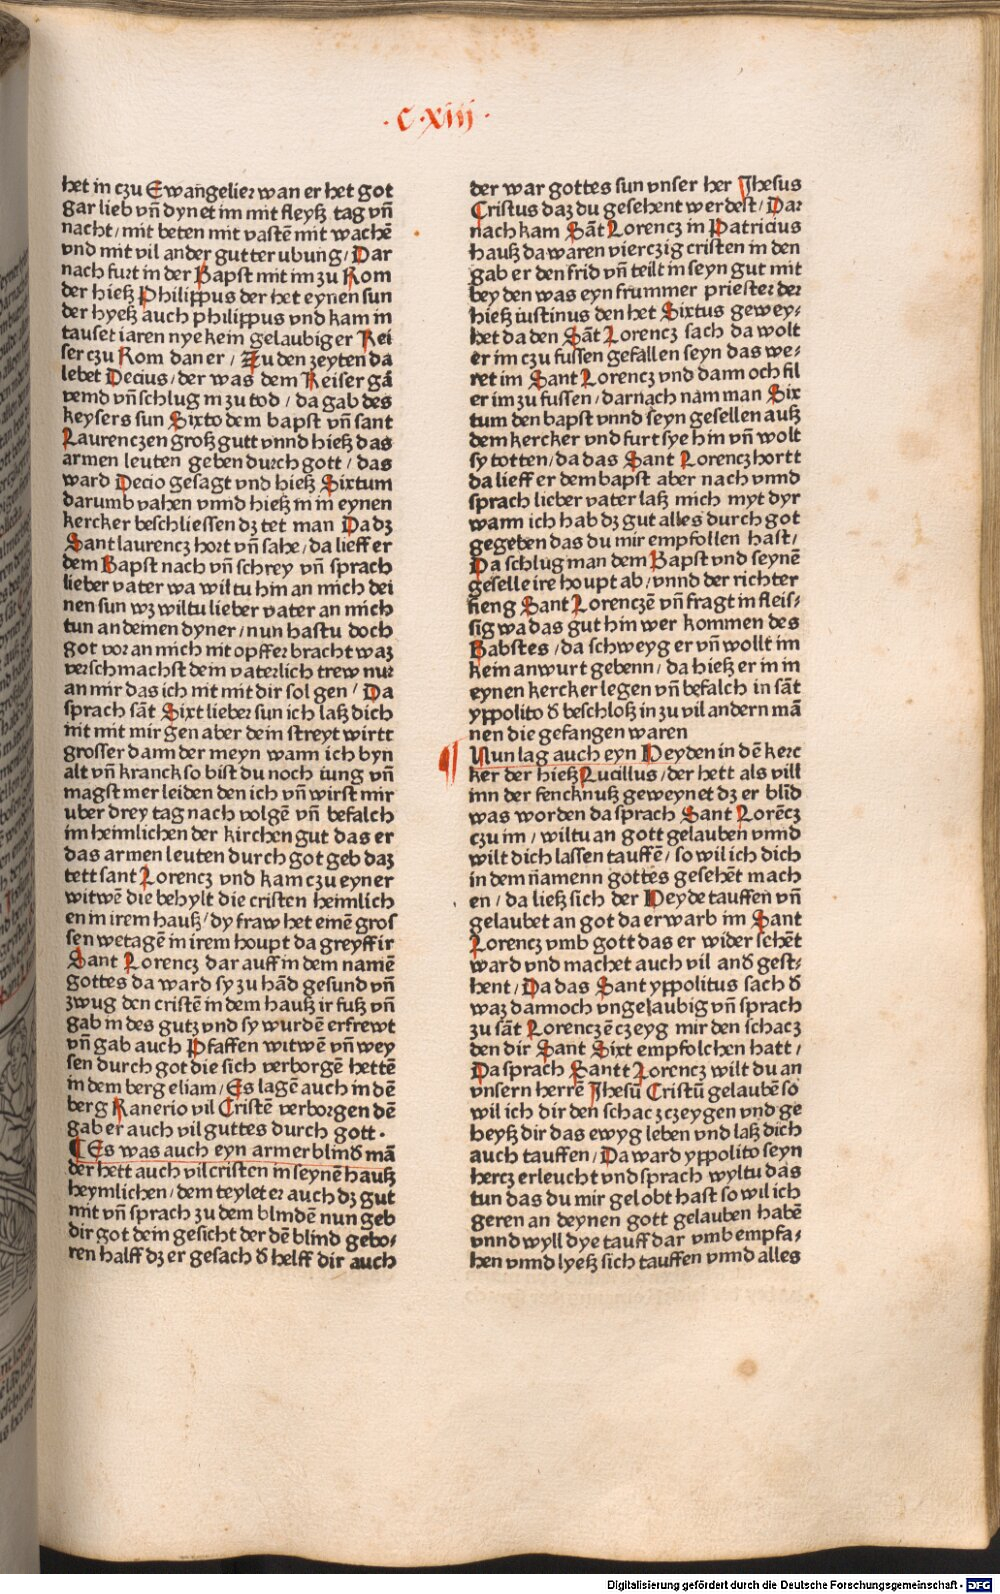 ·C·xiij·
het in czu Ewangelier wan er het got
gar lieb vñ dynet im mit fleyß tag vñ
nacht/mit beten mit vastē mit wachē
vnd mit vil ander gutter vbung/Dar
nach furt in der Bapst mit im zu Rom
der hieß Philippus der het eynen sun
der hyeß auch philippus vnd kam in
tauset iaren nye kein gelaubiger Kei
ser czu Rom dan er/Zu den zeyten da
lebet Decius/der was dem Keiser gā
vemd vñ schlug in zu tod/da gab des
keysers sun Sixto dem bapst vñ sant
Laurenczen groß gutt vnnd hieß das
armen leuten geben durch gott/das
ward Decio gesagt vnd hieß Sixtum
darumb vahen vnnd hieß in in eynen
kercker beschliessen dz tet man Da dz
Sant laurencz hort vñ sahe/da lieff er
dem Bapst nach vñ schrey vñ sprach
lieber vater wa wiltu hin an mich dei
nen sun wz wiltu lieber vater an mich
tun an deinen dyner/nun hastu doch
got vor an mich nit opffer bracht waz
verschmachst dein vaterlich trew nur
an mir das ich nit mit dir sol gen/Da
sprach sāt Sixt lieber sun ich laß dich
nit mit mir gen aber dein streyt wirtt
grosser dann der meyn wann ich byn
alt vñ kranck so bist du noch iung vñ
magst mer leiden den ich vñ wirst mir
vber drey tag nach volgē vñ befalch
im heimlichen der kirchen gut das er
das armen leuten durch got geb daz
tett sant Lorencz vnd kam czu eyner
witwē die behylt die cristen heimlich
en in irem hauß/dy fraw het einē gros
sen wetagē in irem houpt da greyff ir
Sant Lorencz dar auff in dem namē
gottes da ward sy zu hād gesund vñ
zwug den cristē in dem hauß ir fuß vñ
gab in des gutz vnd sy wurdē erfrewt
vñ gab auch Pfaffen witwē vñ wey
sen durch got die sich verborgē hettē
in dem berg eliam/Es lagē auch in dē
berg Ranerio vil Cristē verborgen dē
gab er auch vil guttes durch gott·
¶Es was auch eyn armer blinđ mā
der hett auch vil cristen in seynē hauß
heymlichen/dem teylet er auch dz gut
mit vñ sprach zu dem blindē nun geb
dir got dein gesicht der dē blind gebo-
ren halff dz er gesach đ helff dir auch
der war gottes sun vnser her Jhesus
Cristus daz du gesehent werdest/Dar
nach kam Sāt Lorencz in Patricius
hauß da waren vierczig cristen in den
gab er den frid vñ teilt in seyn gut mit
bey den was eyn frummer priester der
hieß iustinus den het Sixtus gewey-
het da den Sāt Lorencz sach da wolt
er im czu fussen gefallen seyn das we-
ret im Sant Lorencz vnd dannoch fil
er im zu fussen/darnach nam man Six
tum den bapst vnnd seyn gesellen auß
dem kercker vnd furt sye hin vñ wolt
sy totten/da das Sant Lorencz hortt
da lieff er dem bapst aber nach vnnd
sprach lieber vater laß mich myt dyr
wann ich hab dz gut alles durch got
gegeben das du mir empfollen hast/
Da schlug man dem Bapst vnd seynē
geselle ire houpt ab/vnnd der richter
fieng Sant Lorenczē vñ fragt in fleis-
sig wa das gut hin wer kommen des
Babstes/da schweyg er vñ wollt im
kein anwurt gebenn/da hieß er in in
eynen kercker legen vñ befalch in sāt
yppolito đ beschloß in zu vil andern mā
nen die gefangen waren
¶ Nun lag auch eyn Heyden in dē kerc
ker der hieß Lucillus/der hett als vill
inn der fencknuß geweynet dz er blīd
was worden da sprach Sant Lorēcz
czu im/wiltu an gott gelauben vnnd
wilt dich lassen tauffē/so wil ich dich
in dem ñamenn gottes gesehēt mach
en/da ließ sich der Heyde tauffen vñ
gelaubet an got da erwarb im Sant
Lorencz vmb gott das er wider sehēt
ward vnd machet auch vil anđ gest-
hent/Da das Sant yppolitus sach đ
waz dannoch vngelaubig vñ sprach
zu sāt Lorenczē czeyg mir den schacz
den dir Sant Sixt empfolchen hatt/
Da sprach Santt Lorencz wilt du an
vnsern herrē Jhesū Cristū gelaubē so
wil ich dir den schacz czeygen vnd ge
heyß dir das ewyg leben vnd laß dich
auch tauffen/Da ward yppolito seyn
hercz erleucht vnd sprach wyltu das
tun das du mir gelobt hast so wil ich
geren an deynen gott gelauben habē
vnnd wyll dye tauff dar vmb empfa-
hen vnnd lyeß sich tauffen vnnd alles
Digitalisierung gefördert durch die Deutsche Forschungsgemeinschaft - DFG